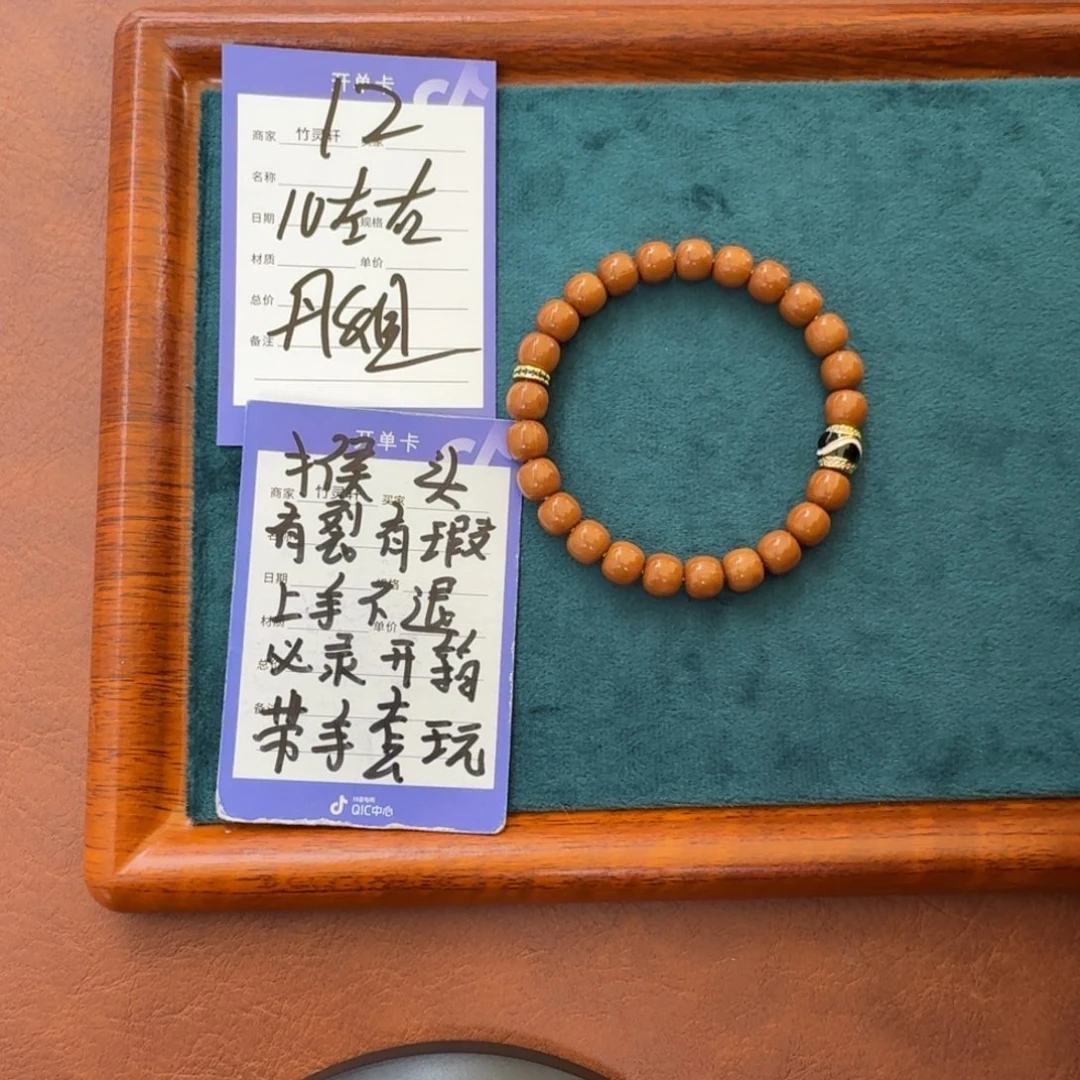 开单卡
12
商家 竹灵轩 买家
名称
10左右
日期 规格
材质 单价
总价
丹姐
备注
开单卡
猴头
商家 竹灵轩 买家
有裂有瑕
日期 规格
上手不退
材质 单价
必录开箱
总价
备注
带手套玩
抖音电商
QIC中心